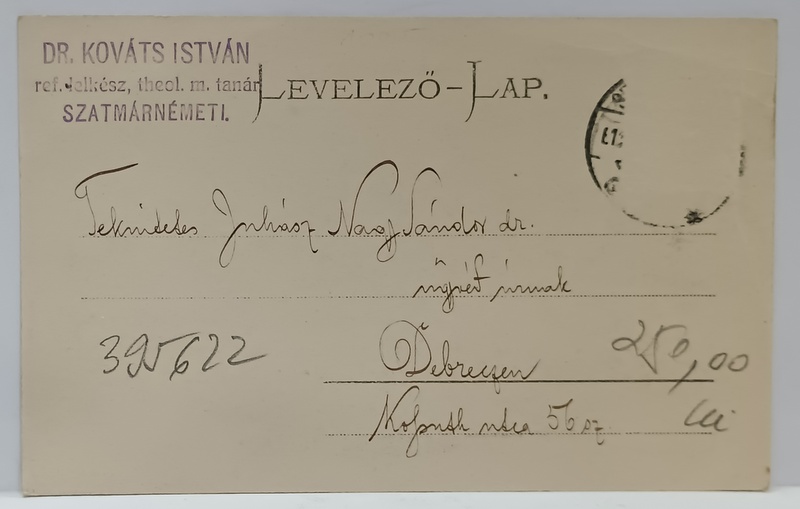 DR. KOVÁTS ISTVÁN
ref. lelkész, theol. m. tanár
SZATMÁRNÉMETI.
LEVELEZŐ-LAP.
Tekintetes Juhász Nagy Sándor dr.
ügyvéd úrnak
395622
Debreczen
250,00
Kossuth utca 56 sz
lei